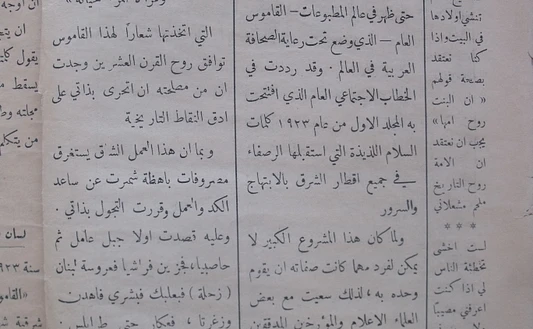 تنشي اولادها
في البيت واذا
كنا نعتقد
بصحة قولهم
« ان البنت
روح امها»
يجب ان نعتقد
ان الامة
روح التاريخ
ملحم مشعلاني
***
لست اخشى
تخطئة الناس
لي اذا كنت
اعرفني مصيباً
حتى ظهر في عالم المطبوعات – القاموس
العام – الذي وضع تحت رعاية الصحافة
العربية في العالم . وقد رددت في
الخطاب الاجتماعي العام الذي افتتحت
به المجلد الاول من عام ١٩٢٣ كلمات
السلام اللذيذة التي استقبلها الرصفاء
في جميع اقطار الشرق بالابتهاج
والسرور
ولما كان هذا المشروع الكبير لا
يمكن لفرد مهما كانت صفاته ان يقوم
وحده به ،لذلك سعيت مع بعض
العلماء الاعلام والمؤرخين المدققين
التي اتخذتها شعاراً لهذا القاموس
توافق روح القرن العشرين وجدت
ان من مصلحته ان اتحرى بذاتي على
ادق النقاط التاريخية
وبما ان هذا العمل الشاق يستغرق
مصروفات باهظة شمرت عن ساعد
الكد والعمل وقررت التجول بذاتي .
وعليه قصدت اولا جبل عامل ثم
حاصبيا، فجزين فراشيا فعروسة لبنان
( زحلة ) فبعلبك فبشري فاهدن
وزغرتا ، فعكار حتى طرابلس .
يقول
يسقط
مجلته
من يتكلم
لسان
سنة ١٩٢٣